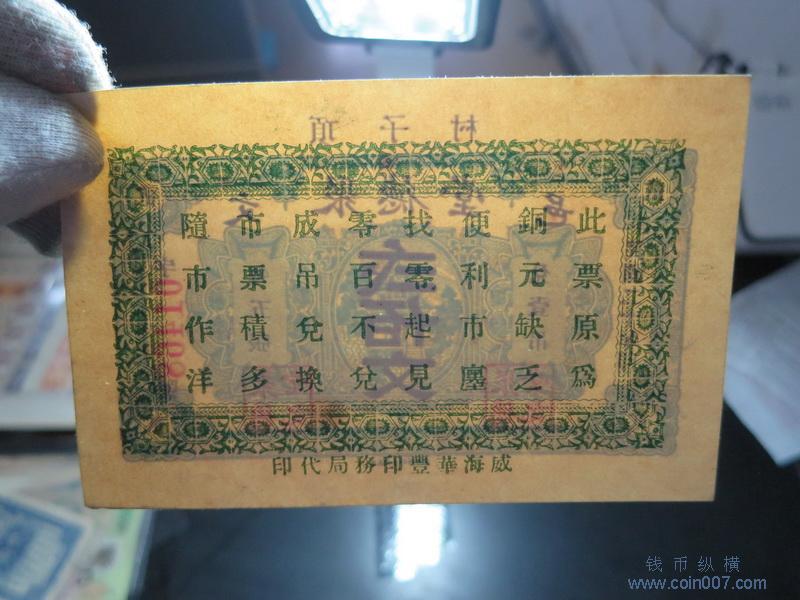 項子村
此票原為
銅元缺乏
便利市廛
找零起見
零百不兌
成吊兌換
市票積多
隨市作洋
威海華豐印務局代印
钱币纵横
www.coin007.com